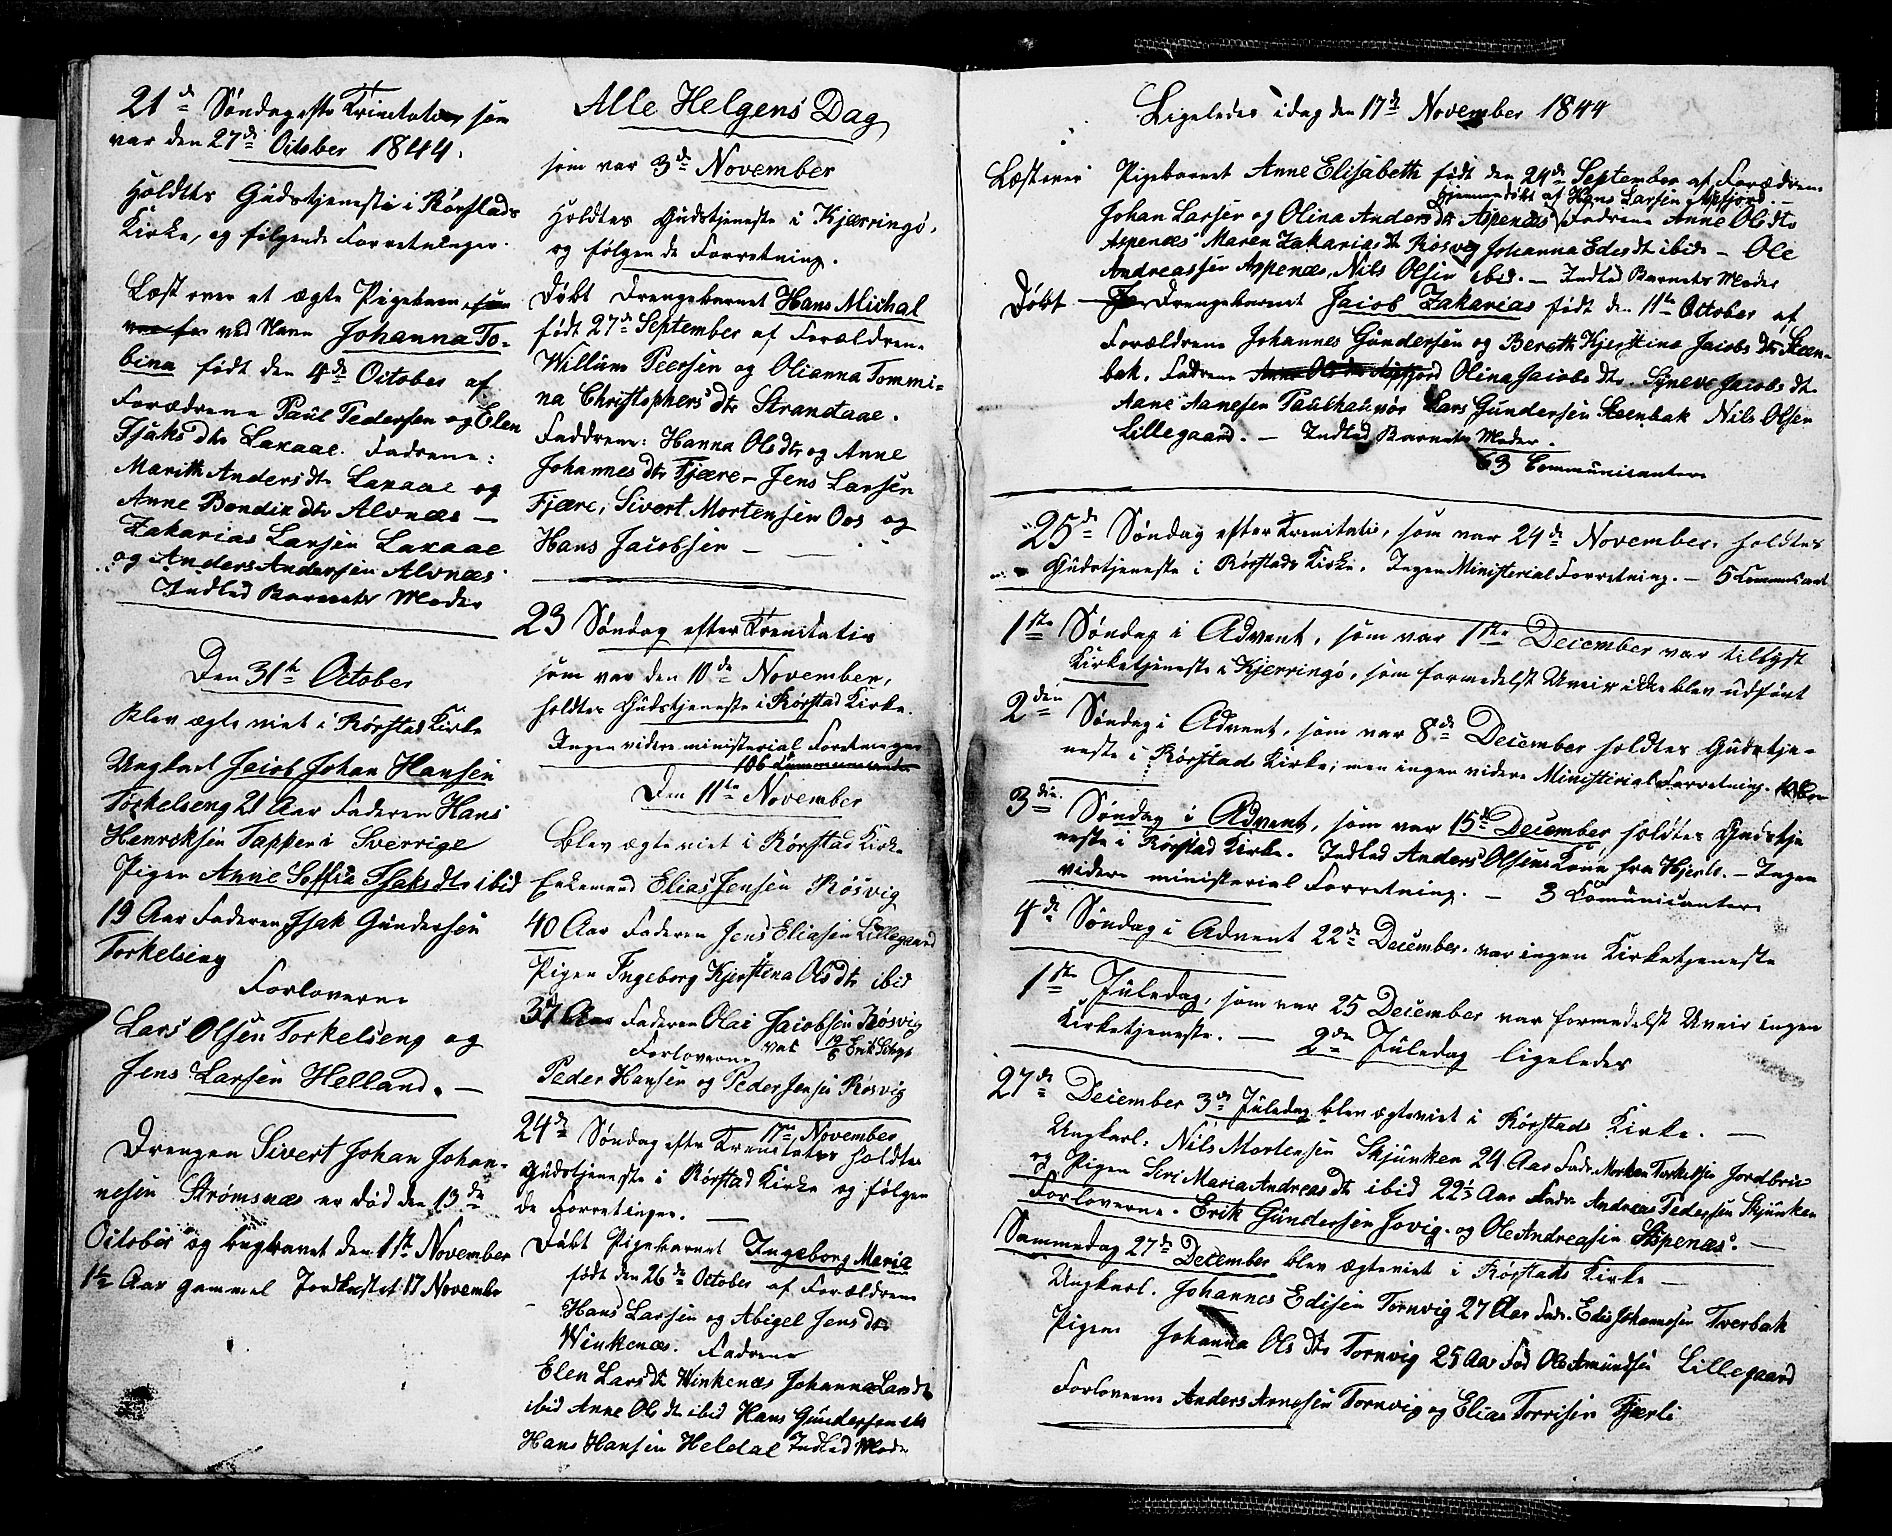 21de Søndag efter Trinitatis som
var den 27de October 1844.
Holdtes Gudstjeneste i Rørstads
Kirke, og følgende Forretninger.
Læst over et ægte Pigebarn som
ved Navn Johanna To-
bina født den 4de October af
Forædrene Paul Pedersen og Elen
Isaks dtr Laxaae. Fadrene:
Marith Anders dtr Laxaae og
Anne Bendix dtr Alvnæs —
Zakarias Larsen Laxaae
og Anders Andersen Alvnæs
Indled Barnets Moder
Den 31te October
Blev ægteviet i Rørstad Kirke
Ungkarl Jacob Johan Hansen
Torkelseng 21 Aar Faderen Hans
Henreksen Tapper i Sverrige
Pigen Anne Soffia Isaks dtr ibid
19 Aar Faderen Isak Gundersen
Torkelseng
Forloverne
Lars Olsen Torkelseng og
Jens Larsen Helland. —
Drengen Sivert Johan Johan-
nesen Strømsnæs er død den 13de
October og begravet den 1ste November
1½ Aar gammel Jordkastet 17 Novembr
Alle Helgens Dag
som var 3de November
Holdtes Gudstjeneste i Kjærringø,
og følgende Forretning.
Døbt Drengebarnet Hans Michal
født 27de September af Forældrene
Willum Peersen og Olianna Tommi-
na Christophers dtr Strandaae.
Faddrene: Hanna Ols dtr og Anne
Johannes dtr Fjære — Jens Larsen
Fjære, Sivert Mortensen Oos og
Hans Jacobsen —
23 Søndag efter Trenitatis
som var den 10de November,
holdtes Gudstjeneste i Rørstad Kirke.
Ingen videre ministerial Forretninger
106 Kommunicanter
Den 11te November
Blev ægteviet i Rørstad Kirke
Enkemand Elias Jensen Røsvig
40 Aar Faderen Jens Eliasen Lillegaard
Pigen Ingeborg Kjerstena Ols dtr ibid
37 Aar Faderen Olai Jacobsen Røsvig
Forloverne vac 19/6
Peder Hansen og Peder Jensen Røsvig
17de November
24de Søndag efter Trenitatis holdtes
Gudstjeneste i Rørstad Kirke og følgen
de Forretinger. —
Døbt Pigebarnet Ingeborg Maria
født den 26de October af Forældrene
Hans Larsen og Abigel Jens dtr
Winkenæs. Fadrene
Elen Lars dtr Winkenæs Johanna Lars dtr
ibid Anne Ols dtr ibid Hans Gundersen
Hans Hansen Heldal Indled Moder
Ligeledes idag den 17de November 1844
Læst over Pigebarnet Anne Elisabeth født den 24de September af Forædrene
hjemmedøbt af Hans Larsen Aspfjord. —
Johan Larsen og Olina Anders dtr Aspenæs Fadrene Anne Ols dtr
Aspenæs Maren Zakarias dtr Røsveg Johanna Edes dtr ibid — Ole
Andreassen Aspenæs, Nils Olsen ibid. — Indled Barnets Moder
Døbt Drengebarnet Jacob Zakarias født den 11te October af
Forældrene Johannes Gundersen og Bereth Kjerstina Jacobs dtr Steen-
bak. Fadrene Anne Ols dtr Aspfjord Olina Jacobs dtr. Syneve Jacobs dtr
Aane Aanesen Paulhaunør Lars Gundersen Steenbak Nils Olsen
Lillegaard. — Indled Barnets Moder.
63 Communicanter
25de Søndag efter Trenitatis, som var 24de November. holdtes
Gudstjeneste i Rørstads Kirke. Ingen Ministerial Forretning. — 5 Kommunicant
1ste Søndag i Advent, som var 1ste December var tillyst
Kirketjeneste i Kjerringø, som formedelst Uveir ikke blev udført
2den Søndag i Advent, som var 8de December holdtes Gudstje-
neste i Rørstads Kirke; men ingen videre Ministerial Forretning.
3die Søndag i Advent, som var 15de December, holdtes Gudstje
neste i Rørstad Kirke. Indled Anders Olsens Kone fra Hjerls. — Ingen
videre ministerial Forretning. — 3 Komunicanter
4de Søndag i Advent 22de December. var ingen Kirketjeneste
1ste Juledag, som var 25 December var formedelst Uveir ingen
Kirketjeneste. — 2de Juledag ligeledes
27de December 3de Juledag blev ægteviet i Rørstads Kirke. —
Ungkarl. Nils Mortensen Skjunken 24 Aar Fadr Morten Torkelsen Jordbrue
og Pigen Seri Maria Andreas dtr ibid 22½ Aar Fadr Andreas Pedersen Skjunken
Forloverne. Erik Gundersen Jovig. og Ole Andreassen Aspenæs. —
Sammedag 27de December blev ægteviet i Rørstads Kirke —
Ungkarl. Johannes Edisen Tornvig 27 Aar Fadr. Edis Johannesen Tverbak
Pigen Johanna Ols dtr Tornvig 25 Aar Fad Ole Amundsen Lillegaard
Forloverne Anders Arnesen Tornvig og Elias Torrisen Fjærli